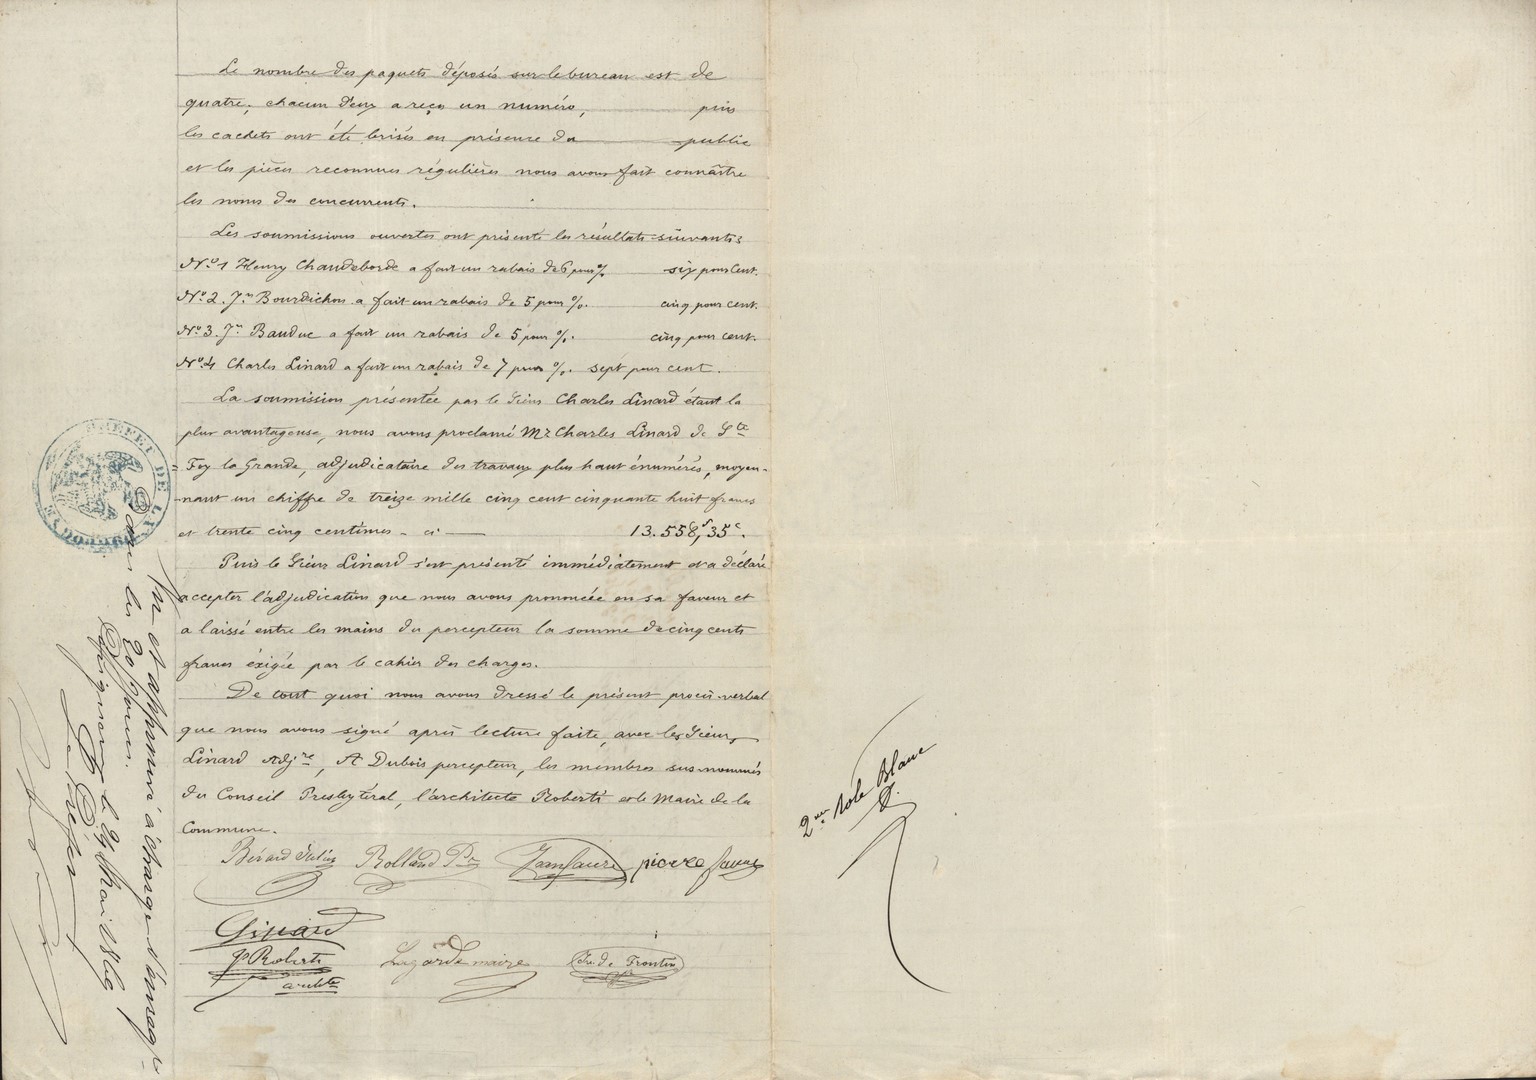 Le nombre des paquets déposés sur le bureau est de
quatre, chacun d'eux a reçu un numéro, puis
les cachets ont été brisés en présence du public
et les pièces reconnues régulières nous avons fait connaître
les noms des concurrents.
Les soumissions ouvertes ont présenté les résultats suivants
N.o 1 Henry Chaudeborde a fait un rabais de 6 pour % six pour cent.
N.o 2. Jn Bourdichon a fait un rabais de 5 pour %. cinq pour cent.
N.o 3. Jn Bauduc a fait un rabais de 5 pour %. cinq pour cent.
N.o 4 Charles Linard a fait un rabais de 7 pour %. sept pour cent.
La soumission présentée par le Sieur Charles Linard étant la
plus avantageuse, nous avons proclamé Mr Charles Linard de Ste
Foy la Grande, adjudicataire des travaux plus haut énumérés, moyen-
nant un chiffre de treize mille cinq cent cinquante huit francs
et trente cinq centimes - ci 13.558,f35c.
Puis le Sieur Linard s'est présenté immédiatement et a déclaré
accepter l'adjudication que nous avons prononcée en sa faveur et
a laissé entre les mains du percepteur la somme de cinq cents
francs éxigée par le cahier des charges.
De tout quoi nous avons dressé le présent procès-verbal
que nous avons signé après lecture faite, avec les Sieurs
Linard Adjre, A Dubois percepteur, les membres sus-nommés
du Conseil Presbytéral, l'architecte Roberti et le Maire de la
Commune.
Bérard Rolland Jean faure pierre faure
Linard
Roberti Lagarde maire de Frontin
PRÉFET DE LA DORDOGNE
Vu et approuvé à charge d'enreg
dans les 20 jours.
Périgueux, le 29 Mai
Le Préfet
2me Role Blanc